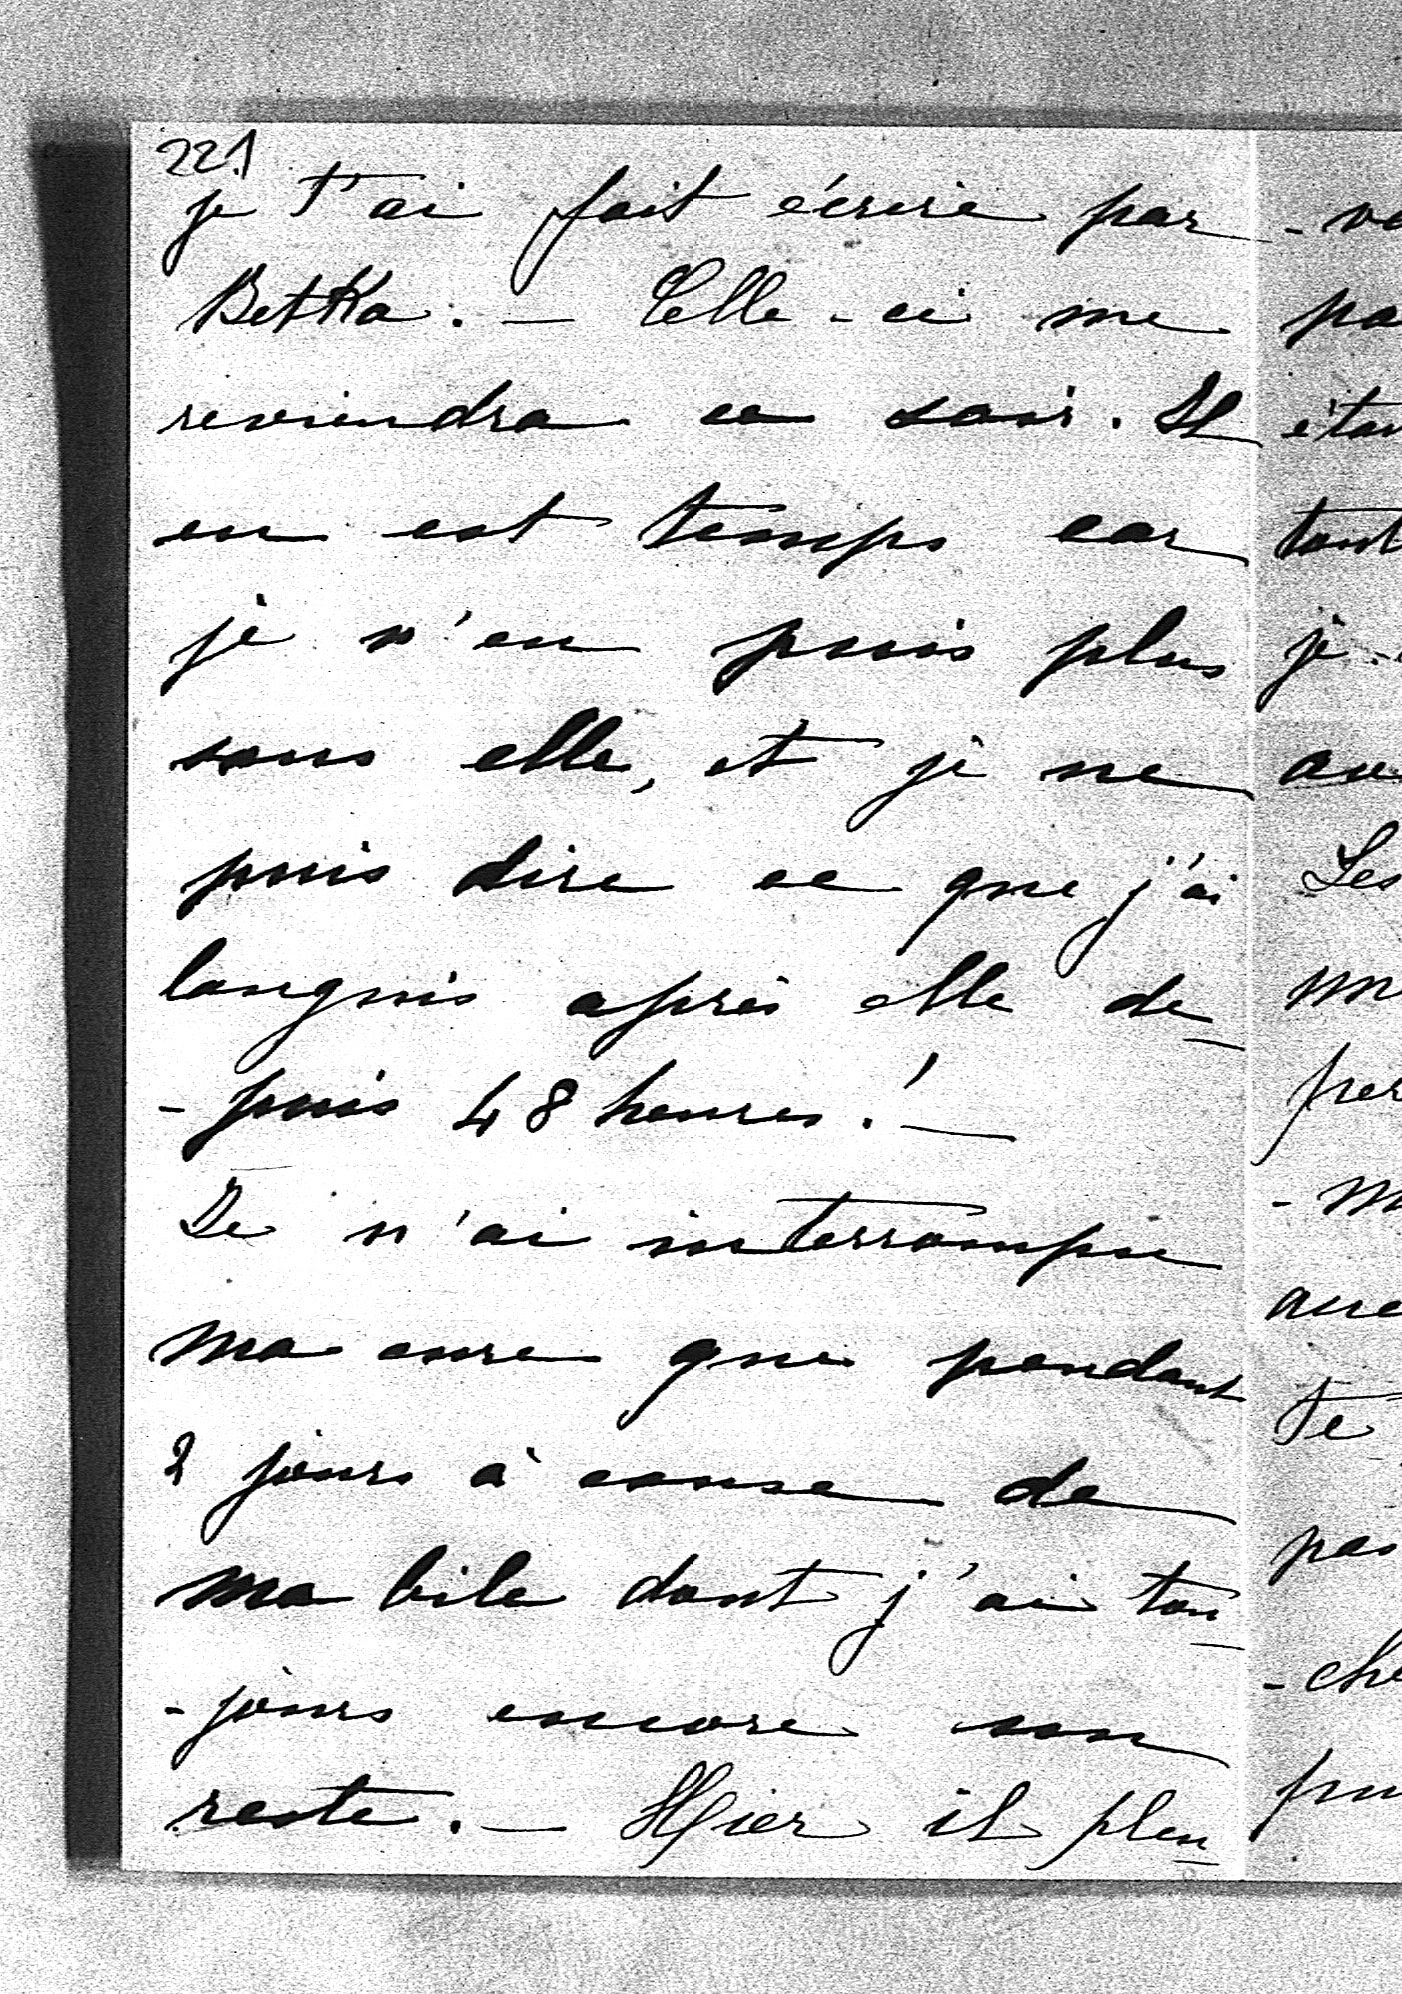 221
je t'ai fait écrire par
Betka. — Celle-ci me
reviendra ce soir. Il
en est temps car
je n'en puis plus
sans elle, et je ne
puis dire ce que j'ai
languis après elle de
-puis 48 heures! —
Je n'ai interrompu
ma cure que pendant
2 jours à cause de
ma bile dont j'ai tou
-jours encore un
reste. — Hier il pleu